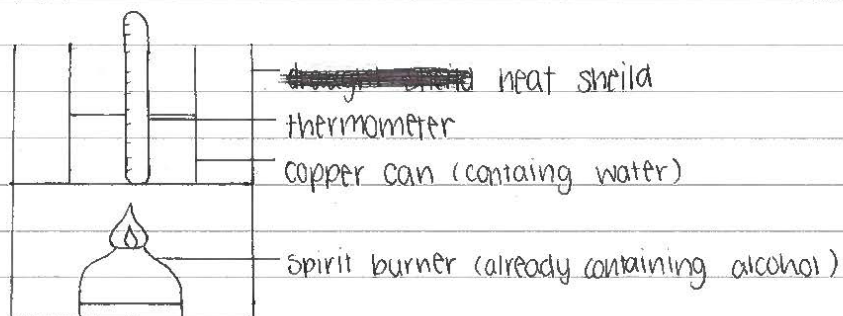 heat sheild
thermometer
copper can (containg water)
spirit burner (already containing alcohol)